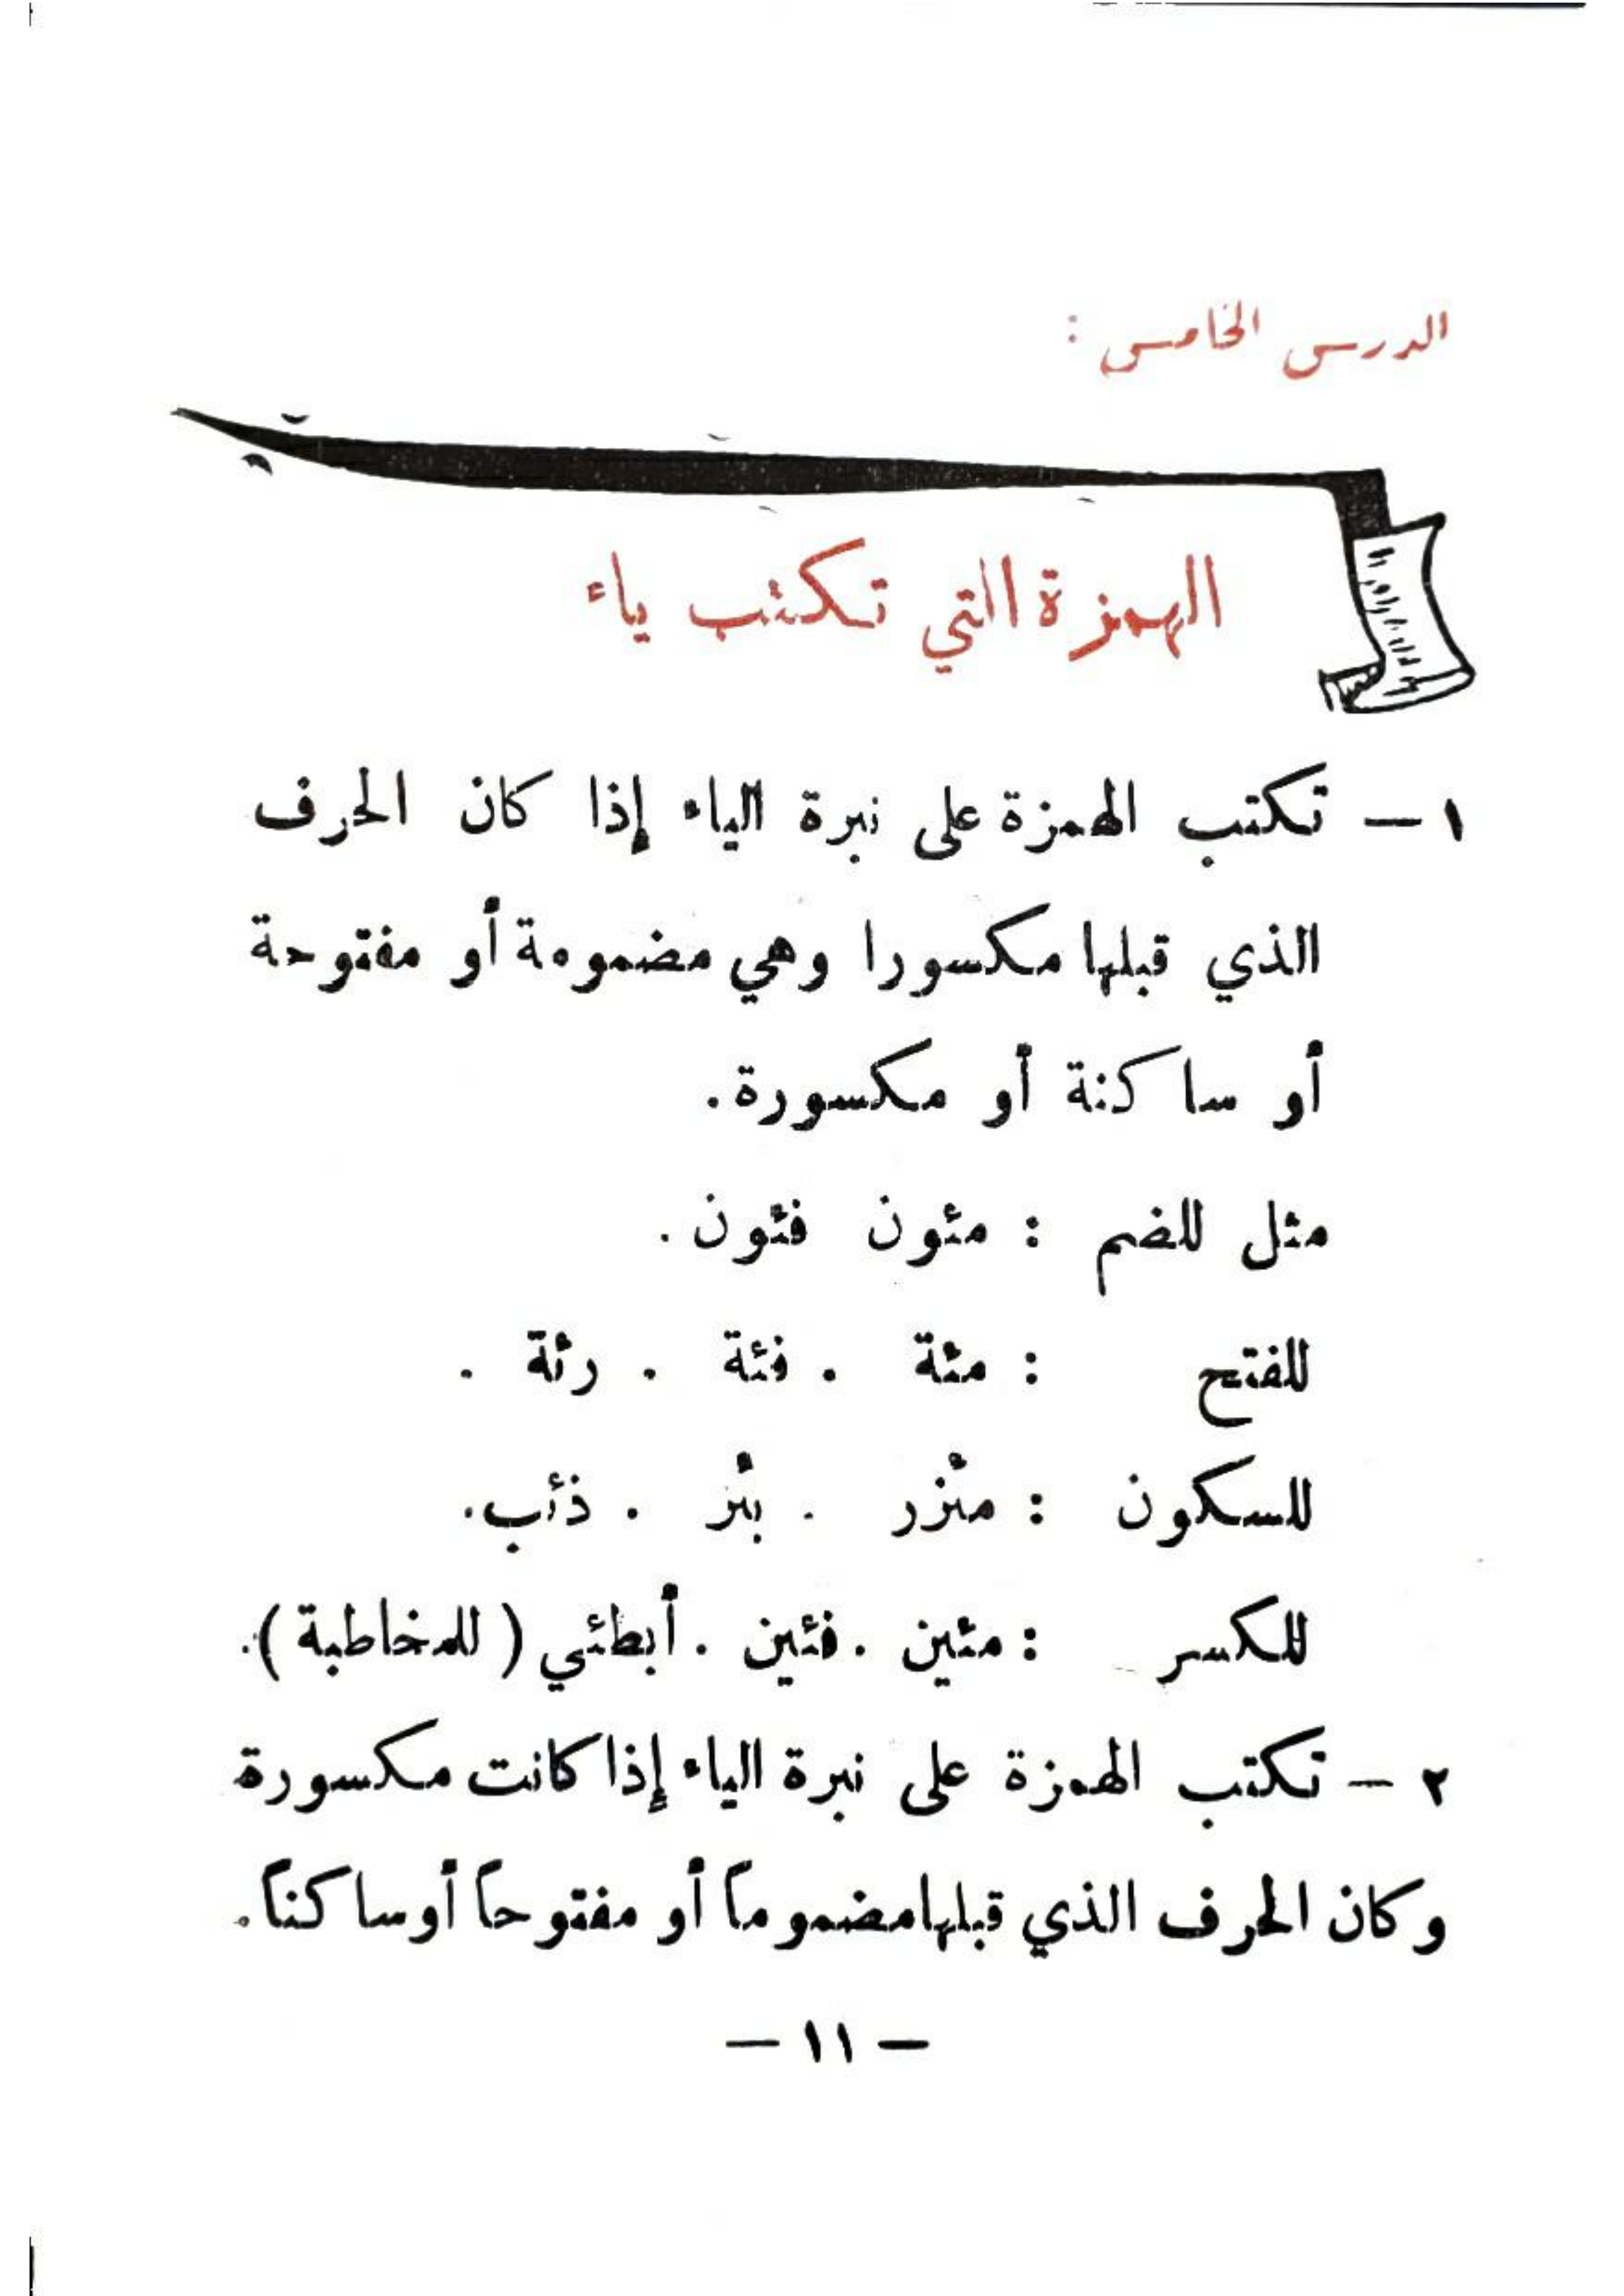 الدرس الخامس :
الهمزة التي تكتب ياء
١ – تكتب الهمزة على نبرة الياء إذا كان الحرف
الذي قبلها مكسورا وهي مضمومة أو مفتوحة
أو ساكنة أو مكسورة.
مثل للضم : مئون فئون .
للفتح : مئة . فئة . رئة .
للسكون : مئزر . بئر . ذئب.
للكسر : مئين . فئين . أبطئي ( للمخاطبة ).
٢ – تكتب الهمزة على نبرة الياء إذا كانت مكسورة
وكان الحرف الذي قبلها مضموماً أو مفتوحاً أو ساكناً.
– ١١ –